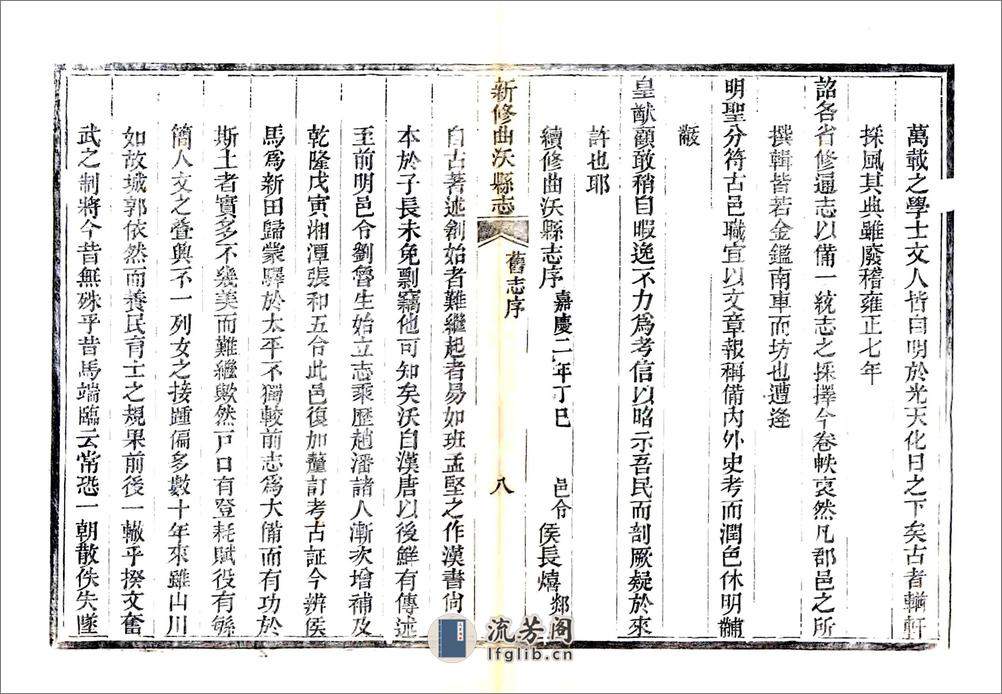 萬載之學士文人皆曰明於光天化日之下矣古者輶軒
採風其典雖廢稽雍正七年
詔各省修通志以備一統志之採擇今卷帙裒然凡郡邑之所
撰輯皆若金鑑南車而坊也遭逢
明聖分符古邑職宜以文章報稱備內外史考而潤色休明黼
黻
皇猷顧敢稍自暇逸不力為考信以昭示吾民而剖厥疑於來
許也耶
續修曲沃縣志序 嘉慶二年丁巳 邑令 侯長熺 郯
新修曲沃縣志 舊志序 八
自古著述創始者難繼起者易如班孟堅之作漢書尚
本於子長未免剽竊他可知矣沃自漢唐以後鮮有傳述
至前明邑令劉魯生始立志乘歷趙潘諸人漸次增補及
乾隆戊寅湘潭張和五令此邑復加釐訂考古証今辨侯
馬為新田歸蒙驛於太平不獨較前志為大備而有功於
斯土者實多不幾美而難繼歟然戸口有登耗賦役有緐
簡人文之疊興不一列女之接踵偏多數十年來雖山川
如故城郭依然而養民育士之規果前後一轍乎揆文奮
武之制將今昔無殊乎昔馬端臨云常恐一朝散佚失墜
流芳阁
lfglib.cn